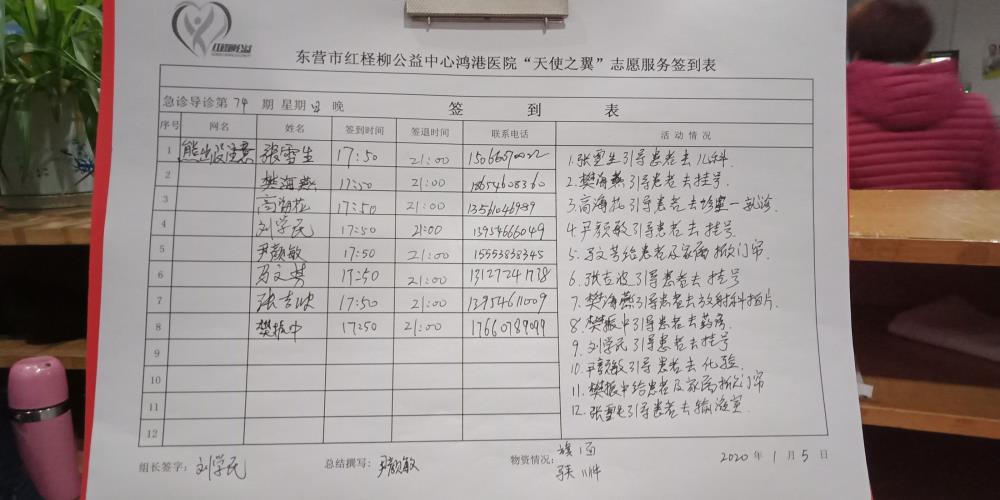 东营市红柽柳公益中心鸿港医院“天使之翼”志愿服务签到表
急诊导诊第 74 期 星期 日 晚 签 到 表
序号 网名 姓名 签到时间 签退时间 联系电话 活 动 情 况
1 熊出没注意 张雪生 17:50 21:00 1.张雪生引导患者去儿科.
2 樊海燕 17:50 21:00 18654608360 2.樊海燕引导患者去挂号.
3 17:50 21:00 13561046989 3.高海花引导患者去诊室一就诊.
4 刘学民 17:50 21:00 13954666049 4.尹颜敏引导患者去挂号.
5 尹颜敏 17:50 21:00 15553838345 5.马文芳给患者及家属掀门帘.
6 马文芳 17:50 21:00 13127241778 6.张吉波引导患者去挂号
7 张吉波 17:50 21:00 13954611009 7.樊海燕引导患者去放射科拍片.
8 樊振中 17:50 21:00 17660789099 8.樊振中引导患者去药房.
9 9.刘学民引导患者去挂号
10 10.尹颜敏引导患者去化验.
11 11.樊振中给患者及家属掀门帘
12 12.张雪生引导患者去输液室.
组长签字: 刘学民 总结撰写: 尹颜敏 物资情况: 旗1面
2020 年 1 月 5 日